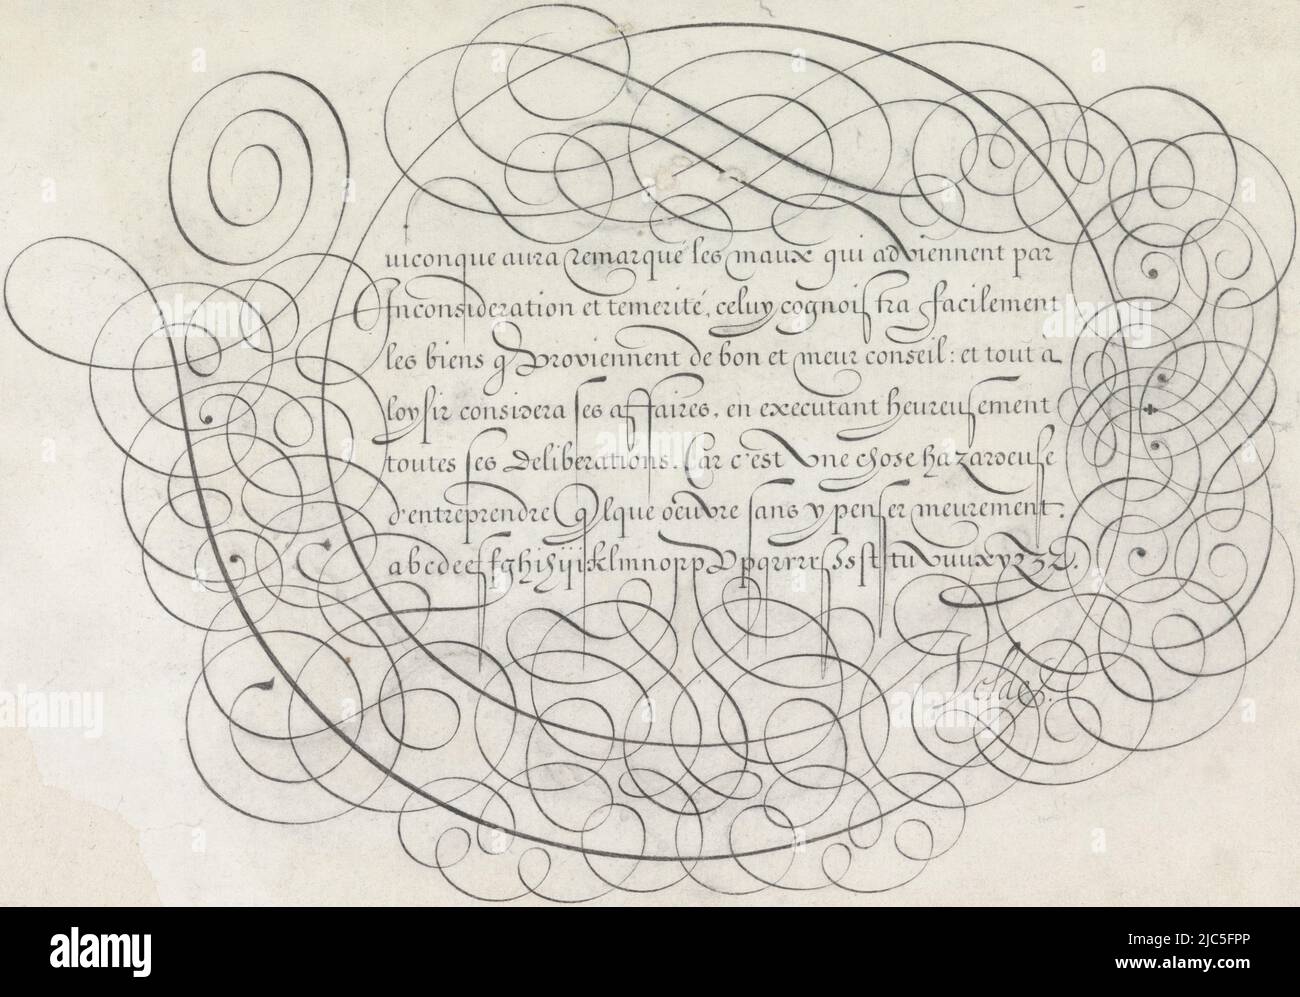 Quiconque aura remarqué les maux qui adviennent par
Inconsideration et temerité, celuy cognoistra facilement
les biens q̃ proviennent de bon et meur conseil: et tout à
loysir considera ses affaires, en executant heureusement
toutes ses deliberations. Car c'est une chose hazardeuse
d'entreprendre Q̃lque oeuvre sans y penser meurement:
Velde.
alamy
Image ID: 2JC5FPP
www.alamy.com